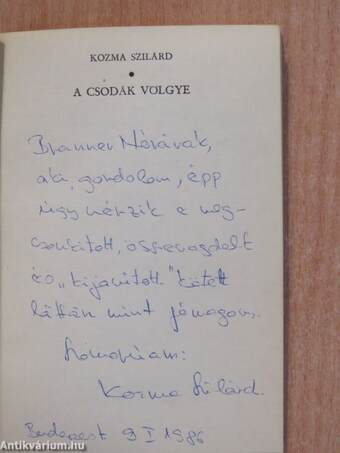 KOZMA SZILÁRD
•
A CSODÁK VÖLGYE
Branner Nórának,
aki, gondolom, épp
úgy vérzik e meg-
csonkított, összevagdalt
és „kijavított" kötet
láttán mint jómagam.
Kozma Szilárd.
Budapest 9 I 1986
Antikvárium.hu